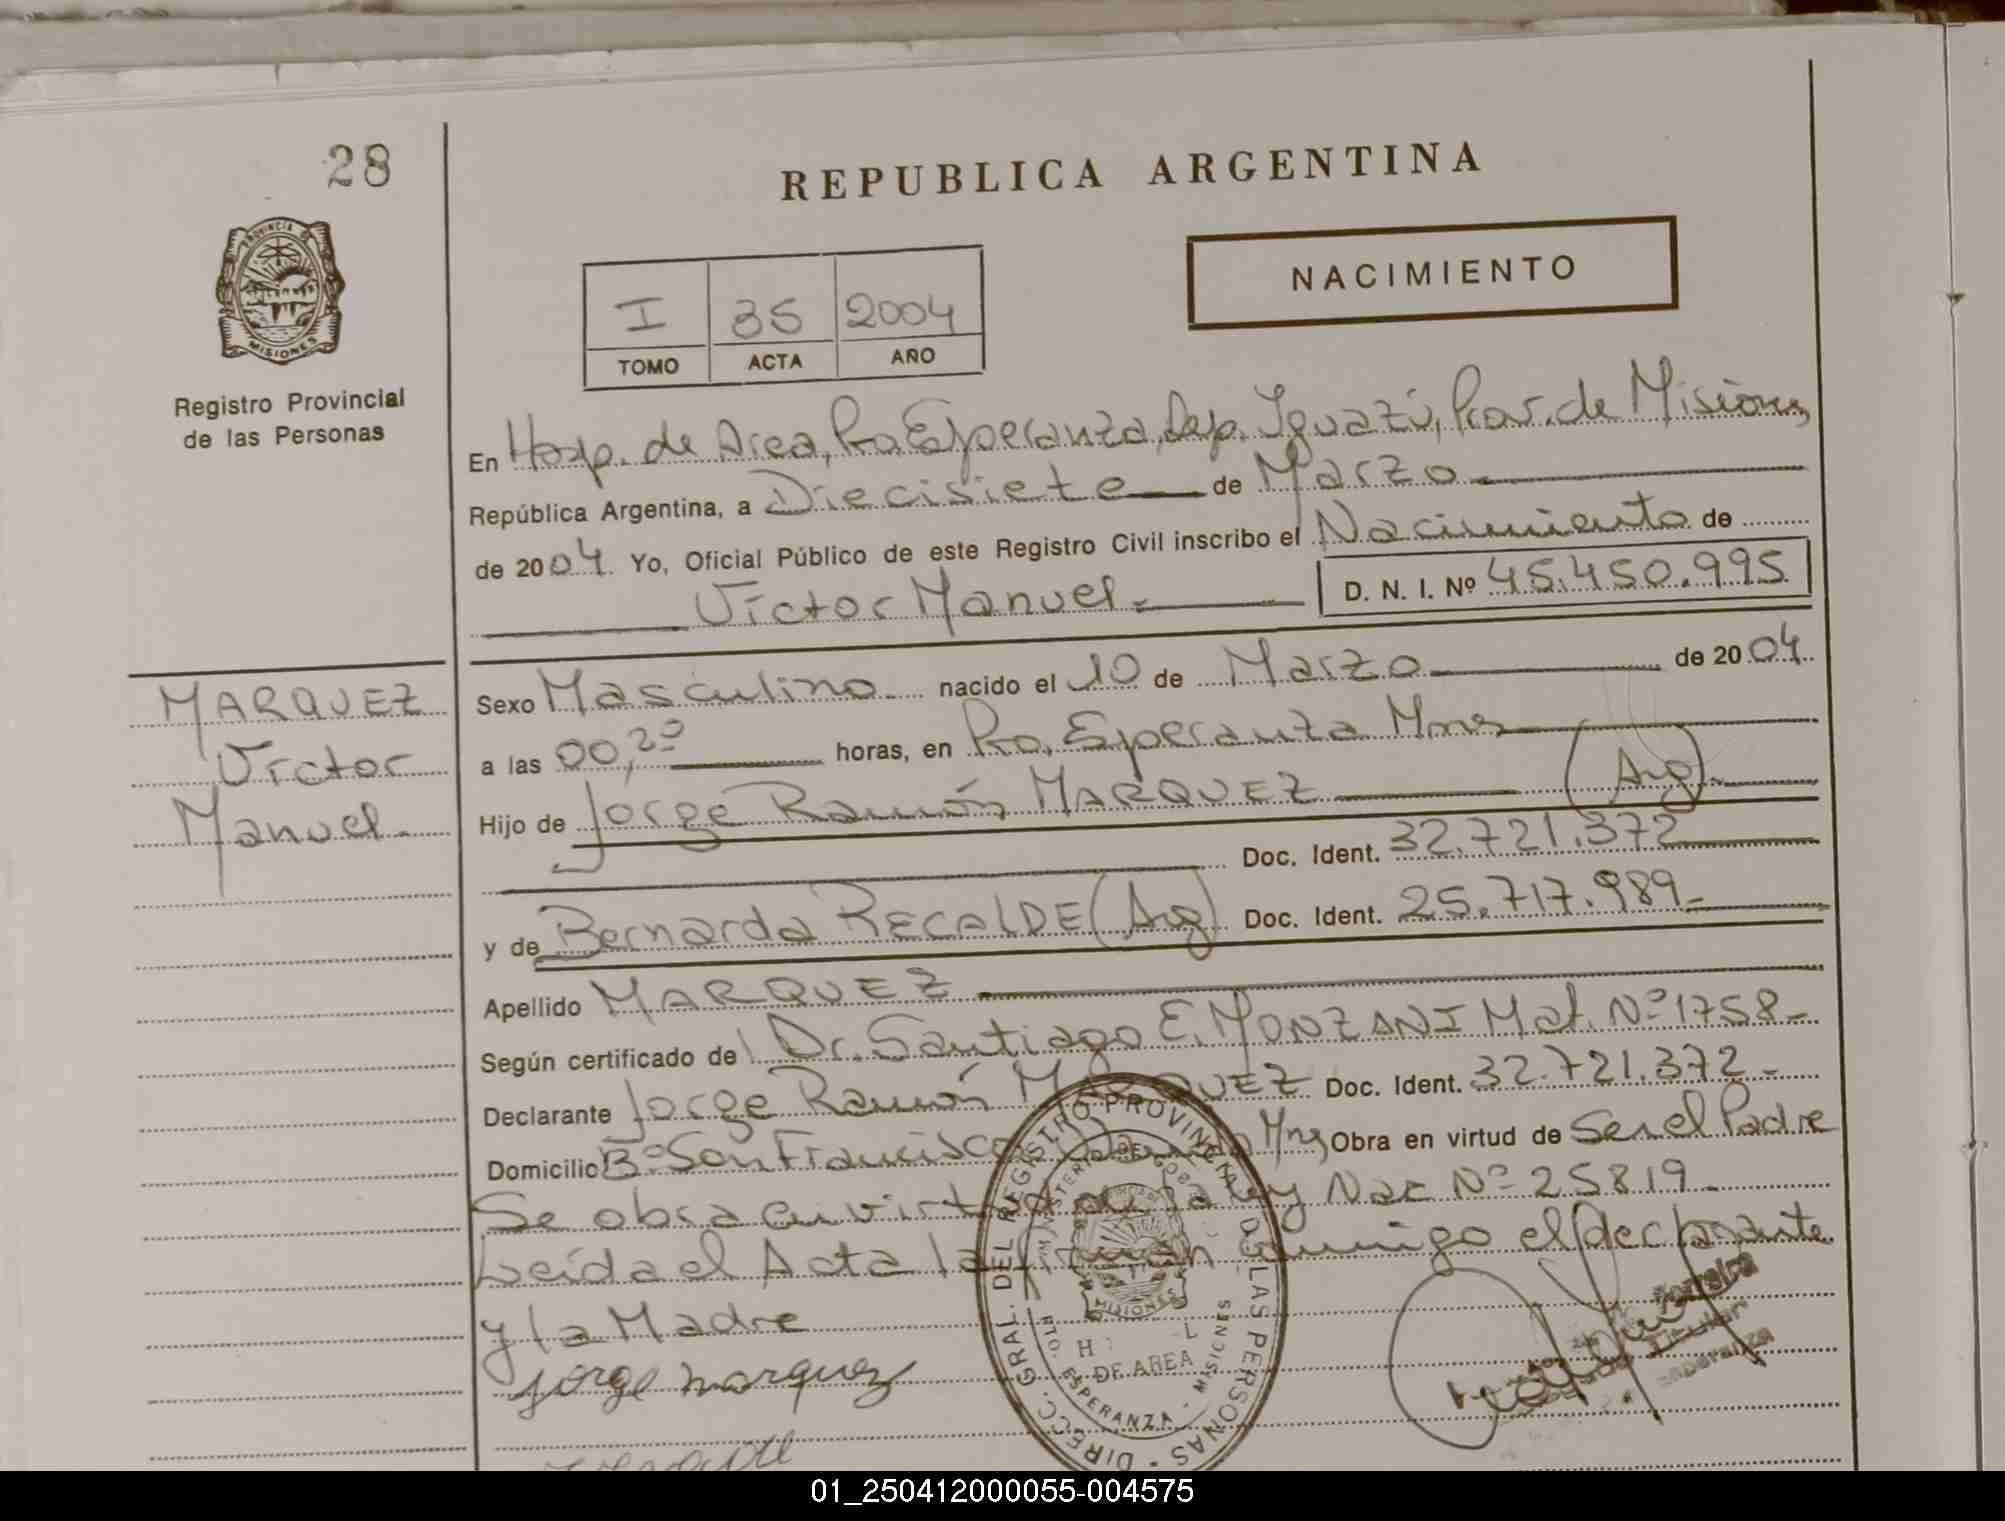 28
REPUBLICA ARGENTINA
NACIMIENTO
I 35 2004
TOMO ACTA AÑO
PROVINCIA DE
MISIONES
Registro Provincial
de las Personas
En Hosp. de Area, Pto. Esperanza, Dep. Iguazú, Prov. de Misiones
República Argentina, a Diecisiete de Marzo
de 2004 Yo, Oficial Público de este Registro Civil inscribo el Nacimiento de
Victor Manuel.- D. N. I. Nº 45.450.995
MARQUEZ
Victor
Manuel.-
Sexo Masculino nacido el 10 de Marzo de 2004
a las 00,20 horas, en Pto. Esperanza Mnes
Hijo de Jorge Ramón MARQUEZ (Arg).-
Doc. Ident. 32.721.372
y de Bernarda RECALDE (Arg) Doc. Ident. 25.717.989.-
Apellido MARQUEZ
Según certificado del Dr. Santiago E. MONZANI Mat. Nº 1758.-
Declarante Jorge Ramón MARQUEZ Doc. Ident. 32.721.372.-
Domicilio Bº San Francisco Mns Obra en virtud de Ser el Padre
Se obra en virtud de la ley Nac Nº 25819.-
Leída el Acta la firman conmigo el declarante
y la Madre
Jorge marquez
DIRECC. GRAL. DEL REGISTRO PROVINCIAL DE LAS PERSONAS
MINISTERIO DE GOB.
MISIONES
DE AREA
PTO. ESPERANZA - MISIONES
Ferreira
Titular
Esperanza
01_250412000055-004575